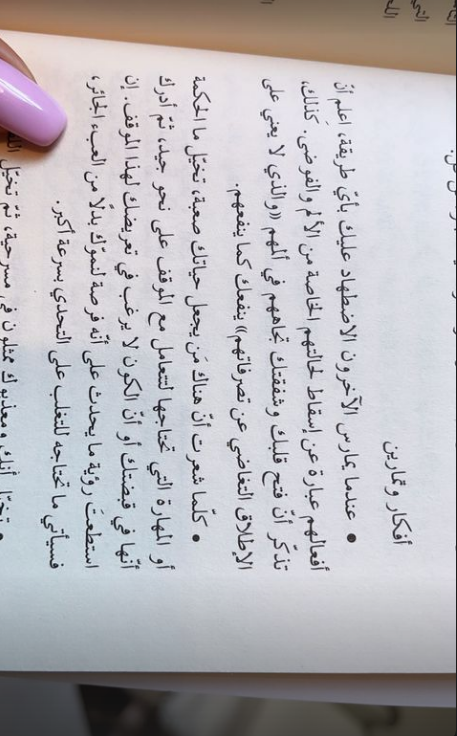 أفكار وتمارين
• عندما يمارس الآخرون الاضطهاد عليك بأيّ طريقة، اعلم أنّ
أفعالهم عبارة عن إسقاط لحالتهم الخاصة من الألم والفوضى. كذلك،
تذكّر أنّ فتح قلبك وشفقتك تجاههم في ألمهم «(والذي لا يعني على
الإطلاق التغاضي عن تصرفاتهم)» ينفعك كما ينفعهم.
• كلّما شعرت أنّ هناك مَن يجعل حياتك صعبة، تخيّل ما الحكمة
أو المهارة التي تحتاجها لتتعامل مع الموقف على نحو جيد، ثمّ أدرك
أنّها في قبضتك أو أنّ الكون لا يرغب في تعريضك لهذا الموقف. إن
استطعتَ رؤية ما يحدث على أنّه فرصة لنموّك بدلًا من العبء الجائر،
فسيأتي ما تحتاجه للتغلب على التحدي بسرعة أكبر.
أنك ومعذبوك ممثلون في مسرحية، ثمّ تخيّل